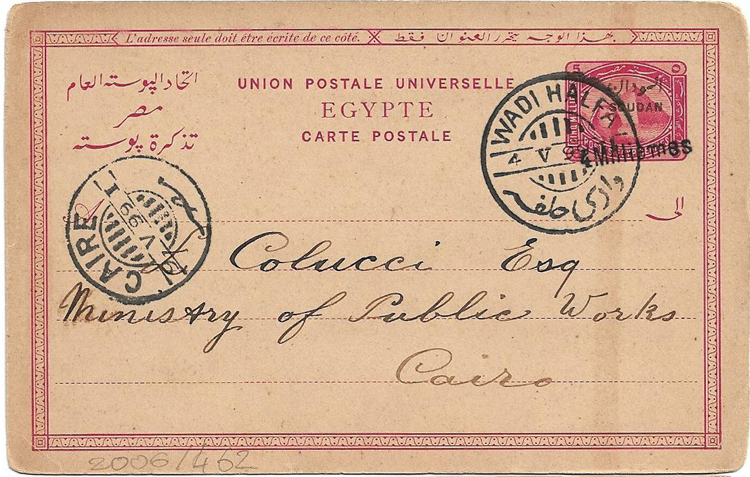 L'adresse seule doit être écrite de ce côté. بهذا الوجه يتحرر العنوان فقط
اتحاد البوسته العام
مصر
تذكرة بوسته
UNION POSTALE UNIVERSELLE
EGYPTE
CARTE POSTALE
5
السودان
SOUDAN
4 Millièmes
WADI HALFA
4 V 9
وادي حلفه
CAIRE
V 99
I
A
الى
Colucci Esq
Ministry of Public Works
Cairo
2006/462